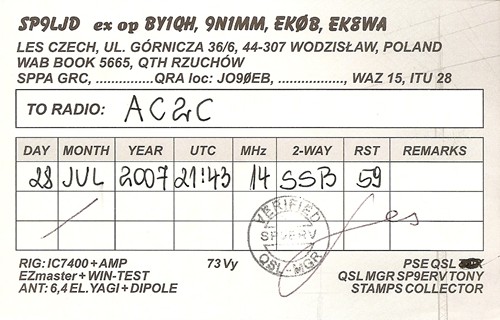 SP9LJD ex op BY1QH, 9N1MM, EKØB, EK8WA
LES CZECH, UL. GÓRNICZA 36/6, 44-307 WODZISŁAW, POLAND
WAB BOOK 5665, QTH RZUCHÓW
SPPA GRC, ...............QRA loc: JO90EB, ................., WAZ 15, ITU 28
TO RADIO: AC2C
DAY MONTH YEAR UTC MHz 2-WAY RST REMARKS
28 JUL 2007 21:43 14 SSB 59
VERIFIED
SP9ERV
QSL-MGR
Les
RIG: IC7400 + AMP 73 Vy PSE QSL
EZmaster + WIN-TEST QSL MGR SP9ERV TONY
ANT: 6,4 EL. YAGI + DIPOLE STAMPS COLLECTOR